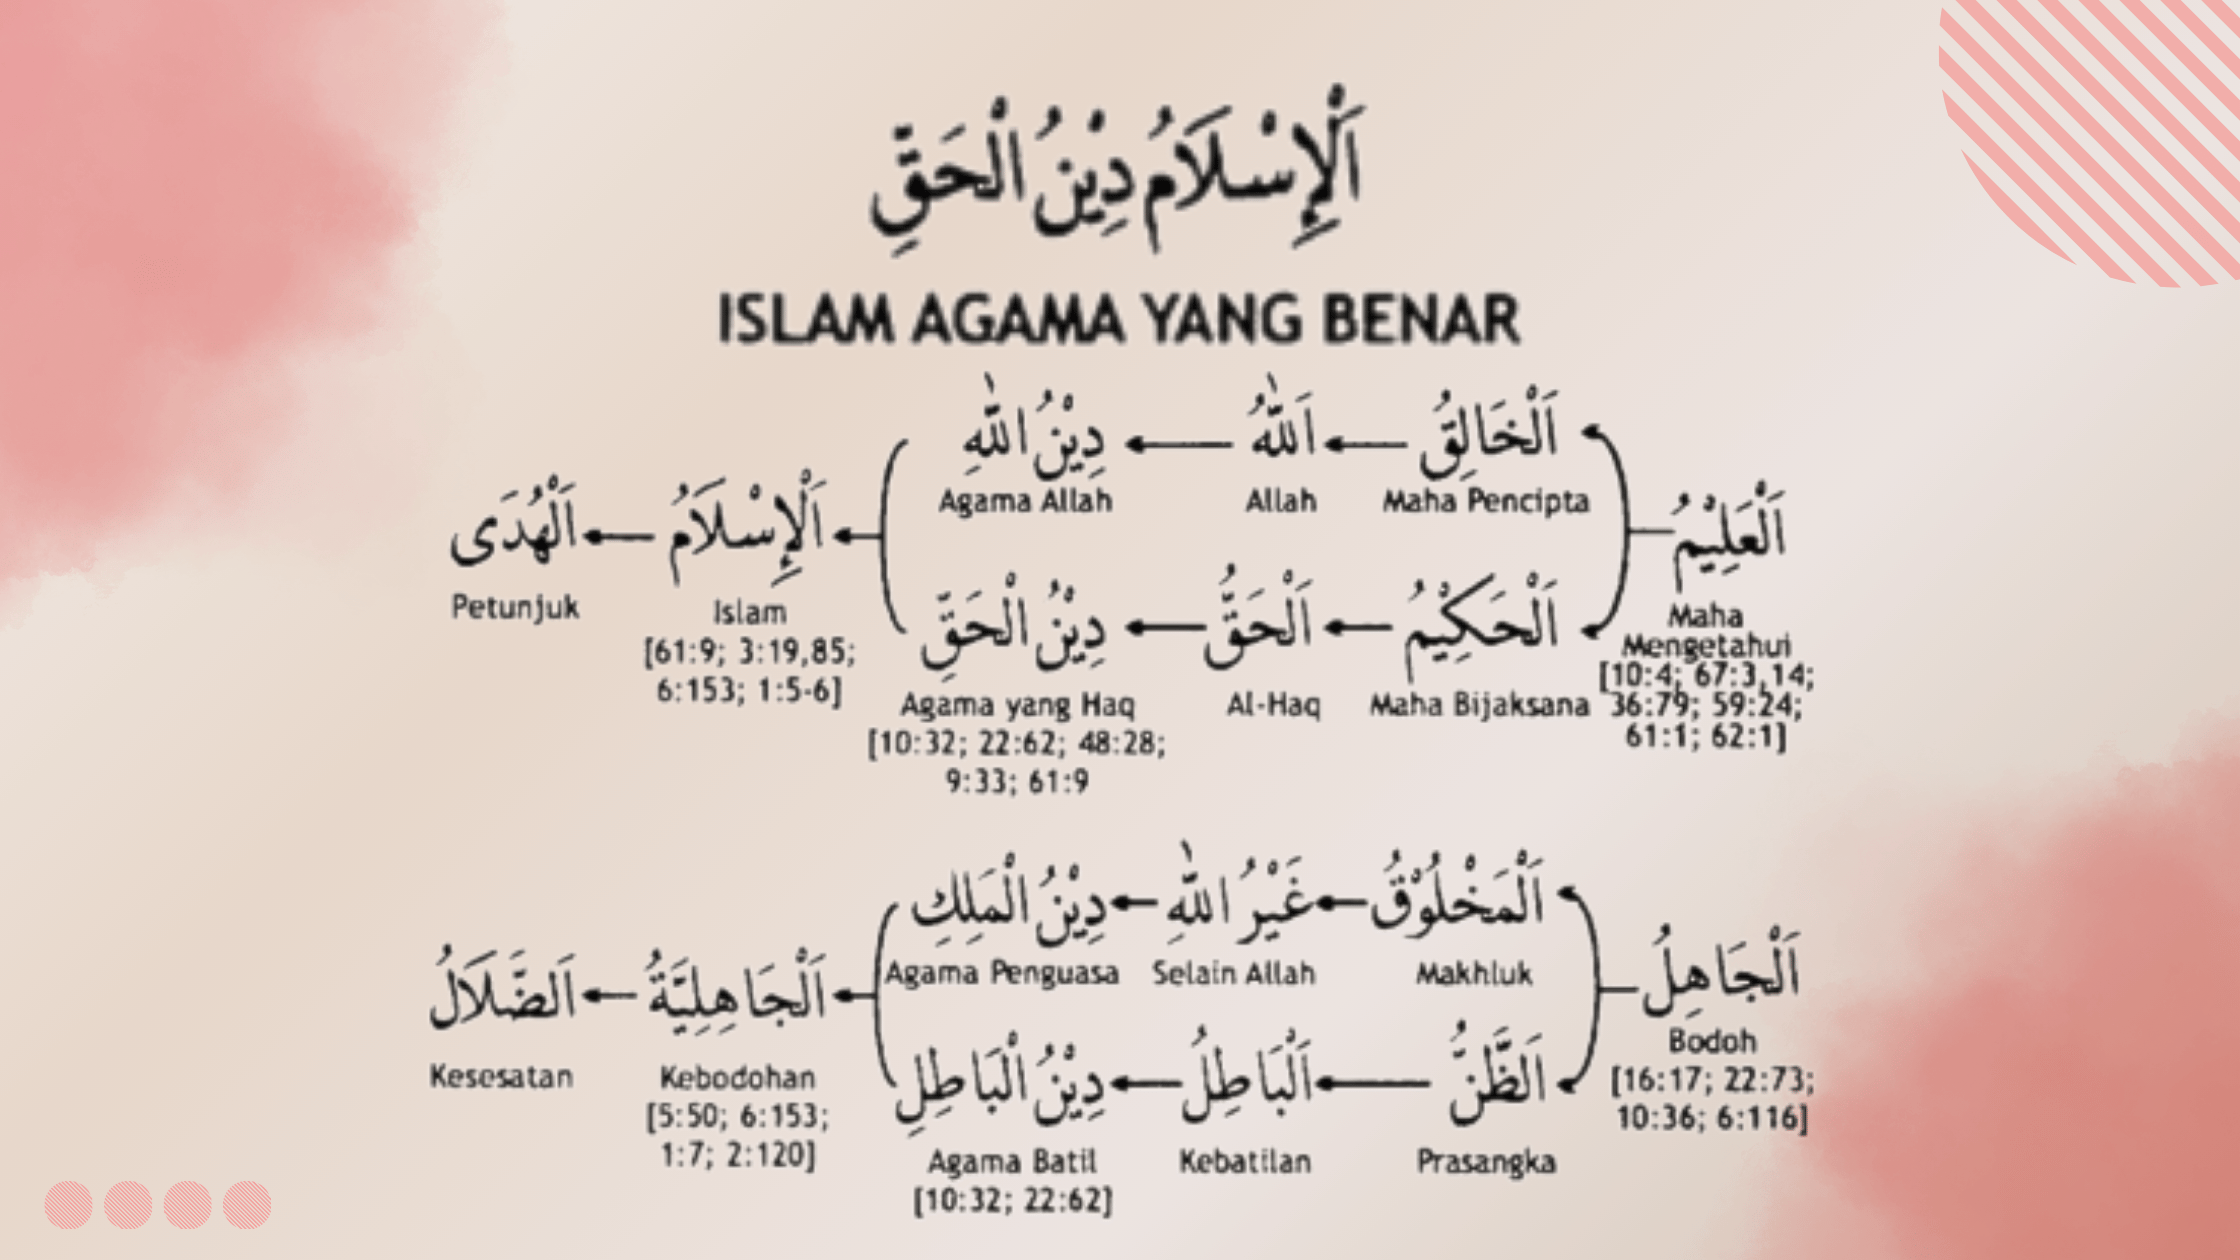 اَلْإِسْلَامُ دِيْنُ الْحَقِّ
ISLAM AGAMA YANG BENAR
اَلْعَلِيْمُ
Maha
Mengetahui
[10:4; 67:3,14;
36:79; 59:24;
61:1; 62:1]
اَلْخَالِقُ
Maha Pencipta
اَللّٰهُ
Allah
دِيْنُ اللّٰهِ
Agama Allah
اَلْحَكِيْمُ
Maha Bijaksana
اَلْحَقُّ
Al-Haq
دِيْنُ الْحَقِّ
Agama yang Haq
[10:32; 22:62; 48:28;
9:33; 61:9
اَلْإِسْلَامُ
Islam
[61:9; 3:19,85;
6:153; 1:5-6]
اَلْهُدَى
Petunjuk
اَلْجَاهِلُ
Bodoh
[16:17; 22:73;
10:36; 6:116]
اَلْمَخْلُوْقُ
Makhluk
غَيْرُ اللّٰهِ
Selain Allah
دِيْنُ الْمَلِكِ
Agama Penguasa
اَلظَّنُّ
Prasangka
اَلْبَاطِلُ
Kebatilan
دِيْنُ الْبَاطِلِ
Agama Batil
[10:32; 22:62]
اَلْجَاهِلِيَّةُ
Kebodohan
[5:50; 6:153;
1:7; 2:120]
اَلضَّلَالُ
Kesesatan